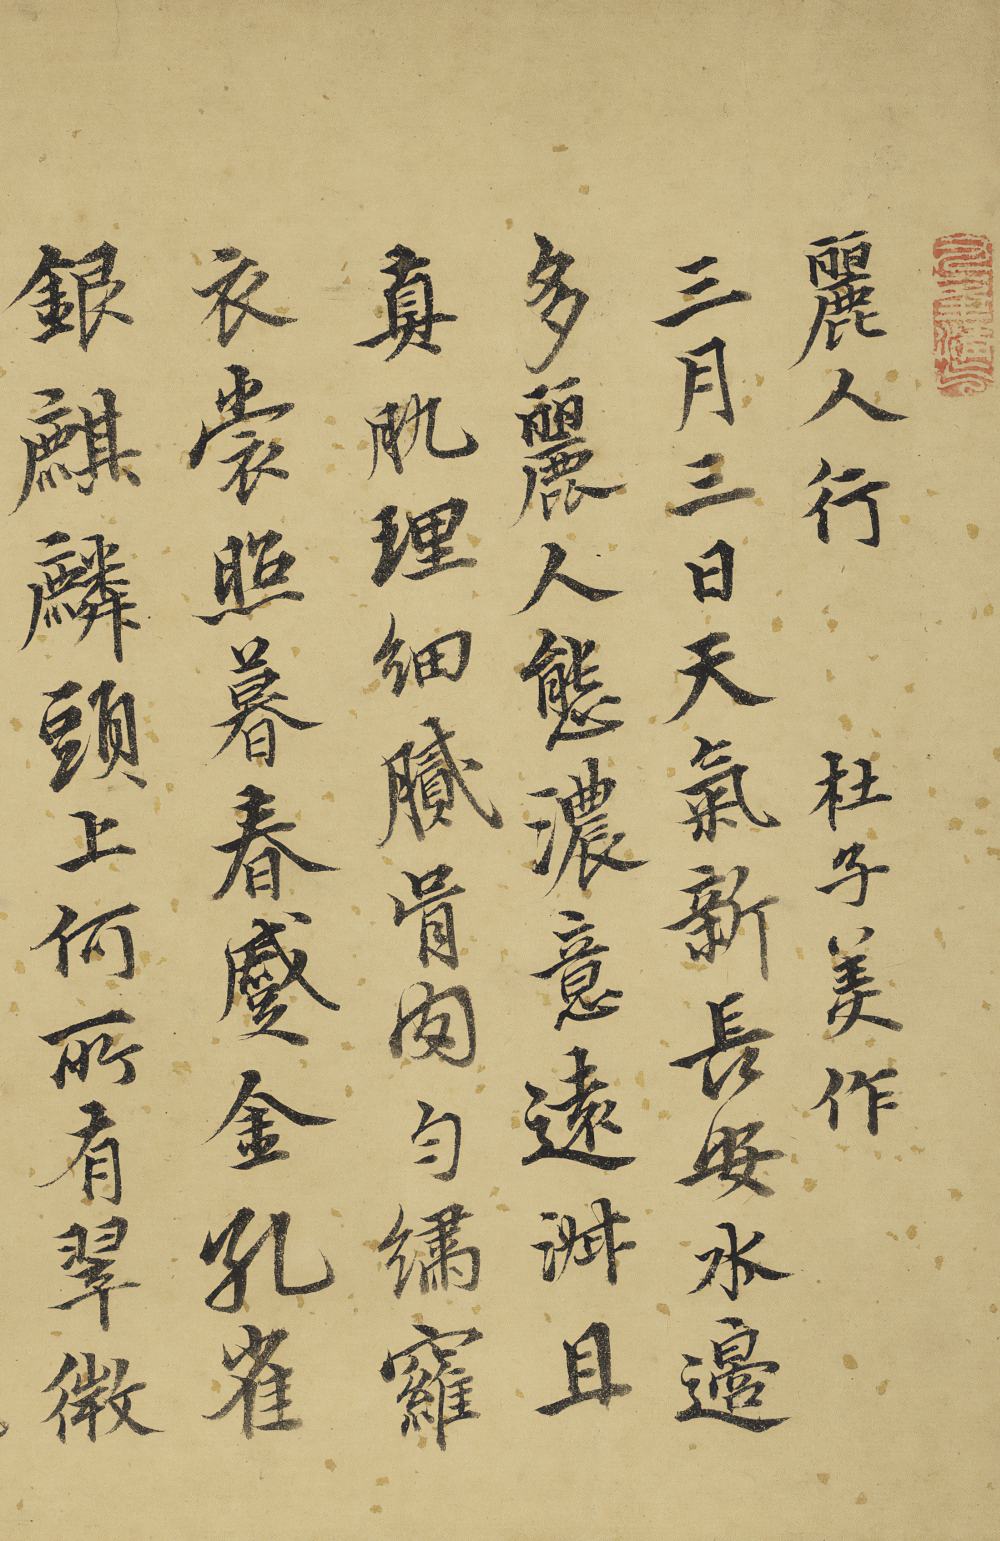 麗人行 杜子美作
三月三日天氣新長安水邊
多麗人態濃意遠淑且
真肌理細膩骨肉勻繡羅
衣裳照暮春蹙金孔雀
銀麒麟頭上何所有翠微